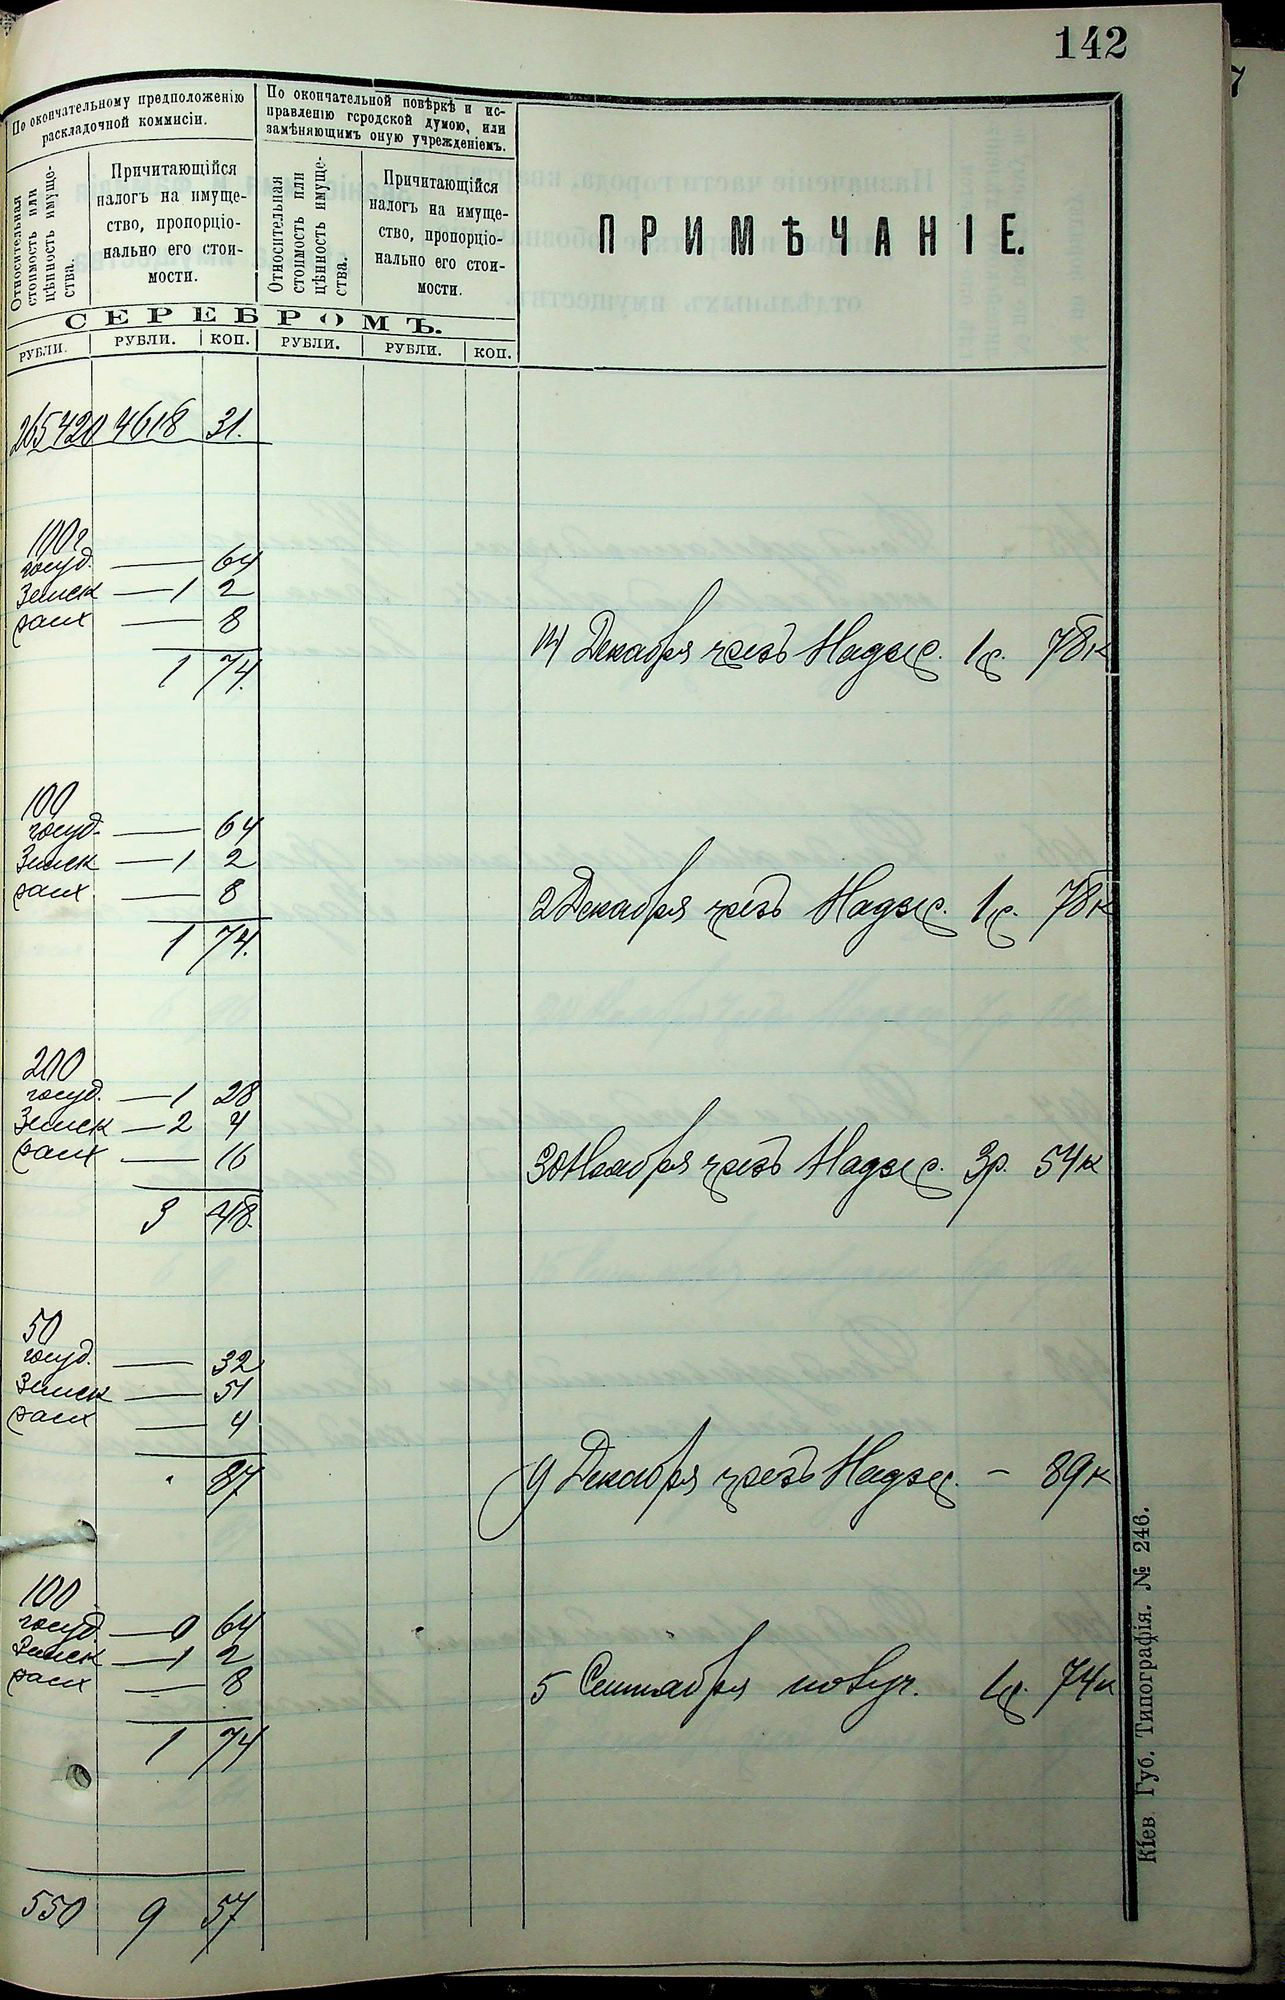 142
По окончательному предположенію
раскладочной коммисіи.
По окончательной повѣркѣ и ис-
правленію городской думою, или
замѣняющимъ оную учрежденіемъ.
Относительная
стоимость или
цѣнность имуще-
ства.
Причитающійся
налогъ на имуще-
ство, пропорціо-
нально его стои-
мости.
Относительная
стоимость или
цѣнность имуще-
ства.
Причитающійся
налогъ на имуще-
ство, пропорціо-
нально его стои-
мости.
ПРИМѢЧАНІЕ.
СЕРЕБРОМЪ.
РУБЛИ. РУБЛИ. КОП. РУБЛИ. РУБЛИ. КОП.
265420 4618 31.
100
госуд. — 64
Земск — 1 2
— 8
14 Декабря чрезъ Надзр. 1р. 78к
1 74.
100
госуд. — 64
Земск — 1 2
— 8
2 Декабря чрезъ Надзр. 1р. 78к
1 74.
200
госуд. — 1 28
Земск — 2 4
— 16
30 Ноября чрезъ Надзр. 3р. 54к
3 48.
50
госуд. — 32
Земск — 51
— 4
9 Декабря чрезъ Надзр. — 89к
87
100
госуд. — 0 64
Земск — 1 2
— 8
5 Сентября 1р. 74к
1 74
550 9 57
Кіев. Губ. Типографія. № 246.